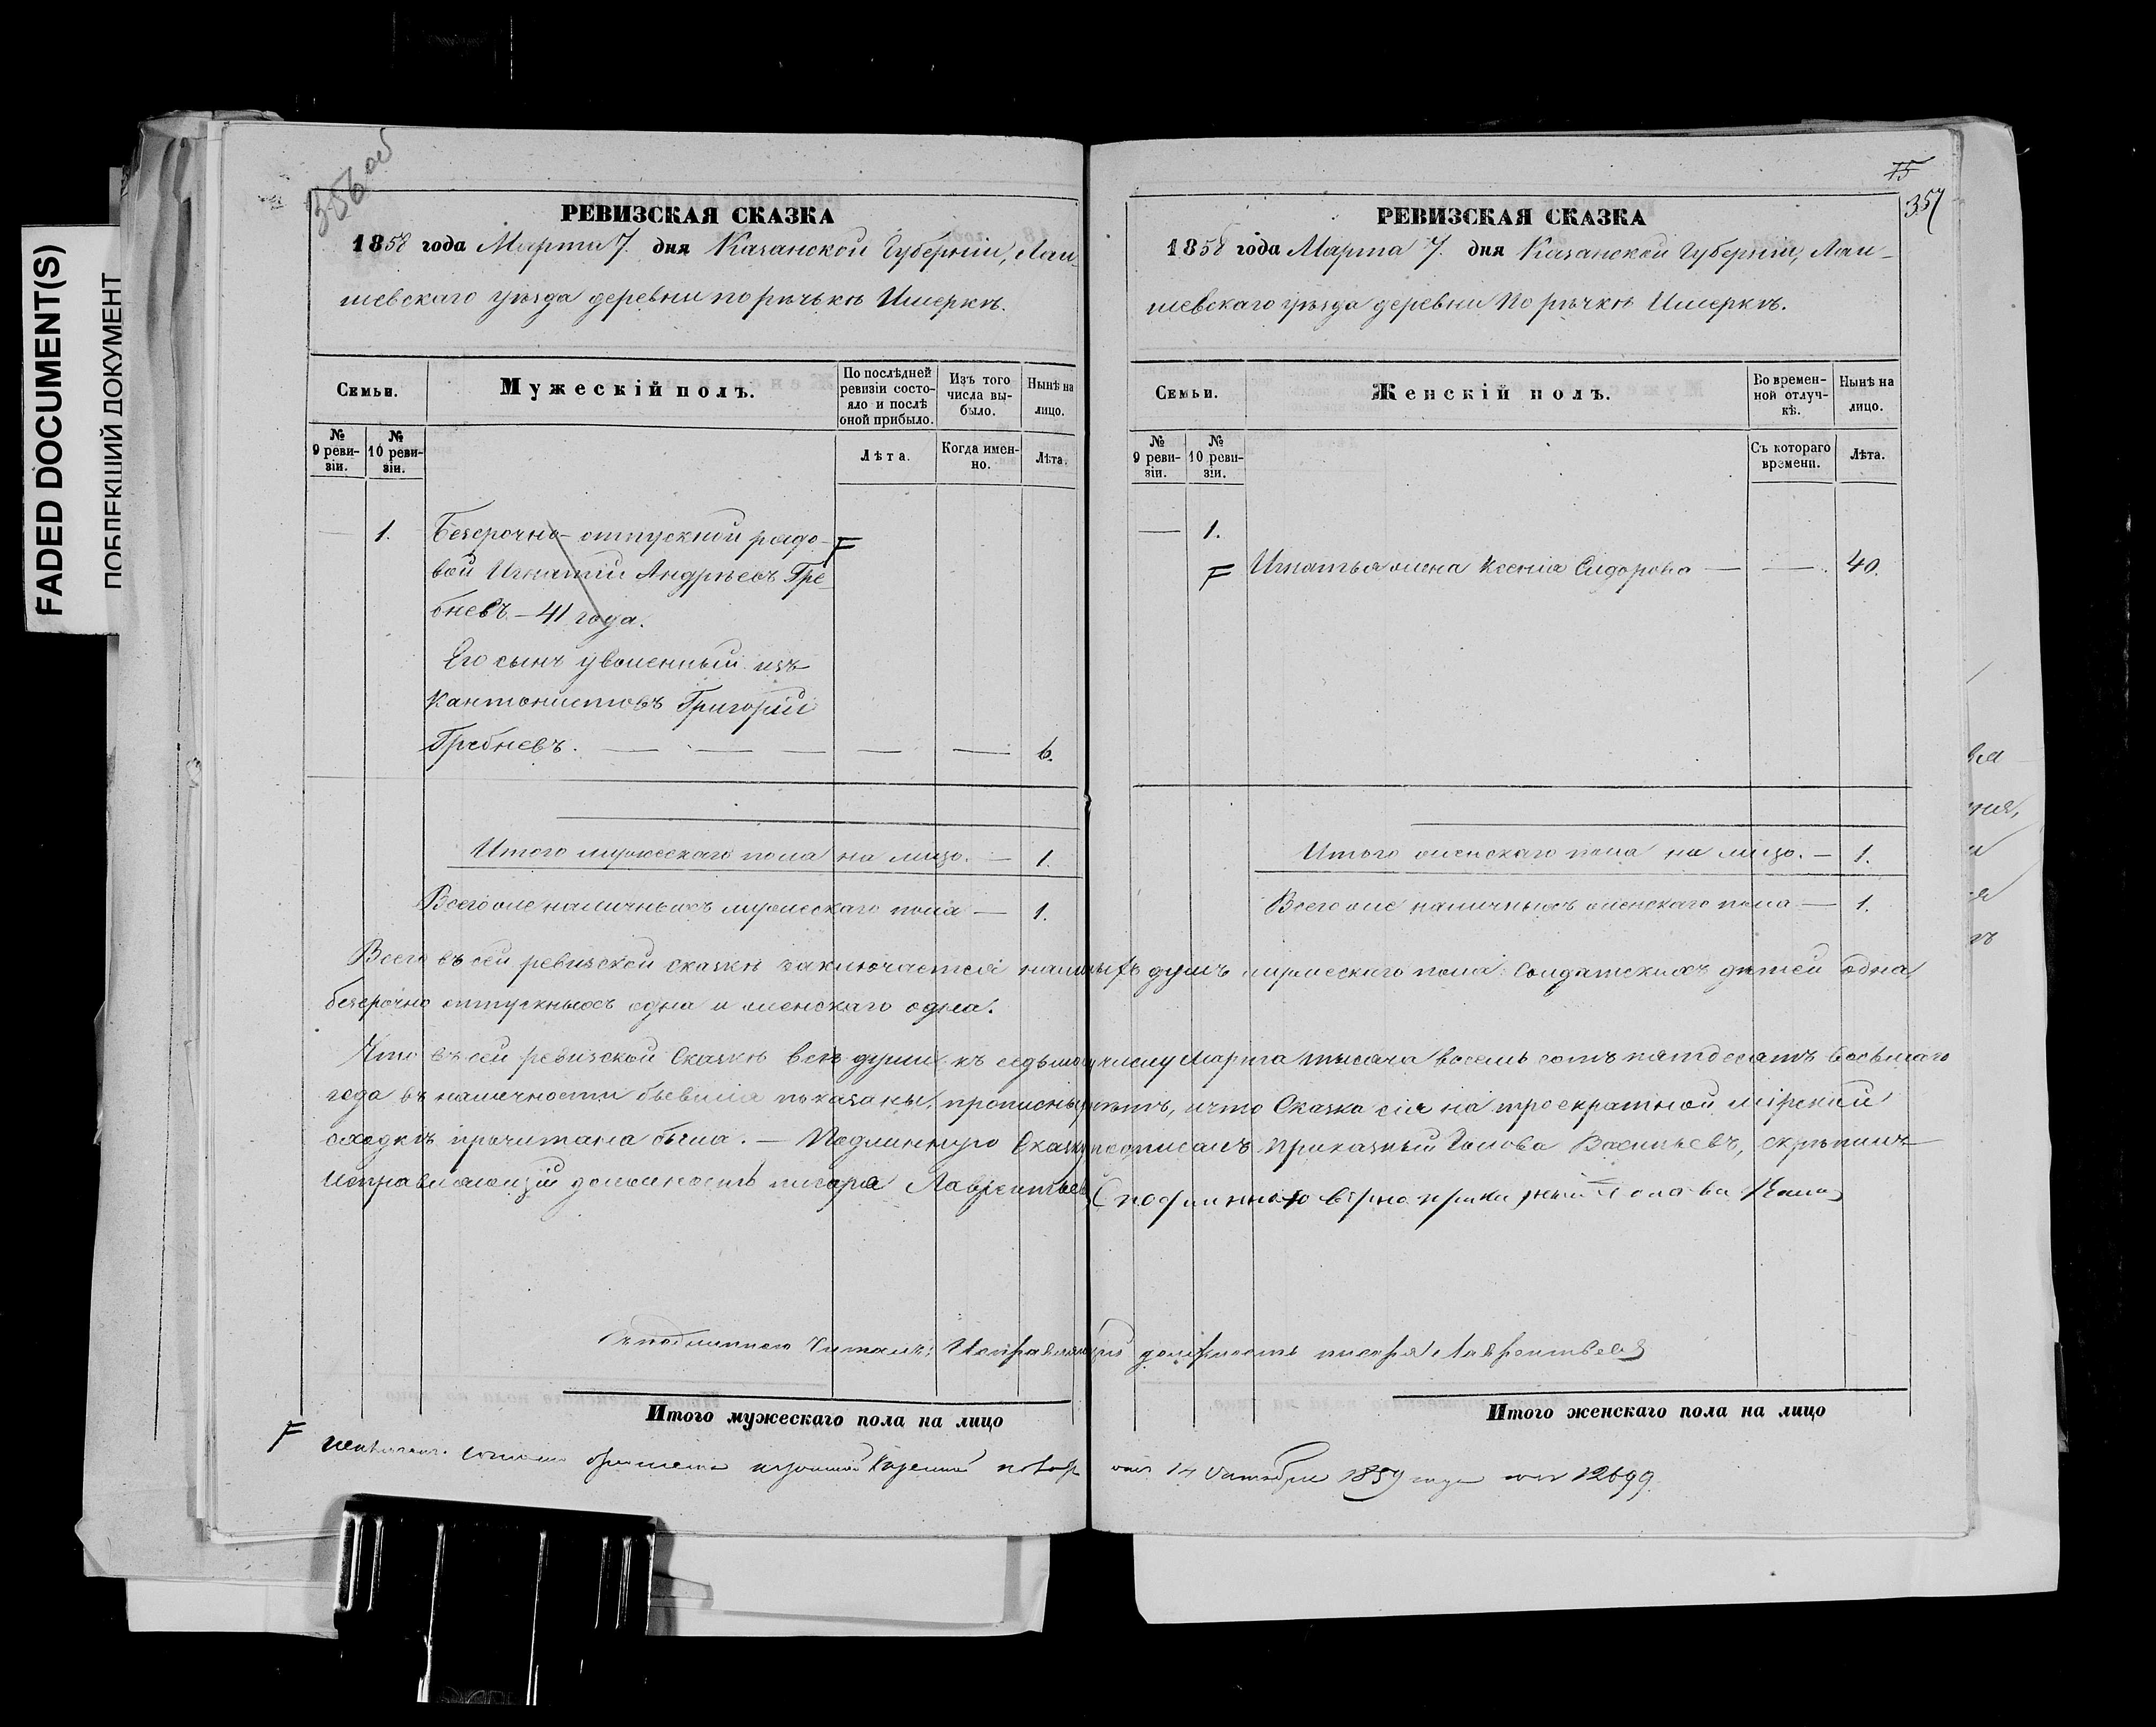 FADED DOCUMENT(S)
ПОБЛЕКШИЙ ДОКУМЕНТ
356 об
РЕВИЗСКАЯ СКАЗКА
1858 года Марта 7. дня Казанской Губерніи, Лаи-
шевскаго уѣзда деревни по рѣчькѣ Ишеркѣ.
Семьи.
Мужескій полъ.
По послѣдней ревизіи состояло и послѣ оной прибыло.
Изъ того числа выбыло.
Нынѣ на лицо.
№ 9 ревизіи.
№ 10 ревизіи.
Лѣта.
Когда именно.
Лѣта.
— 1. Безсрочно-отпускной рядо-
вой Игнатій Андрѣевъ Гре-
бневъ – 41 года.
Его сынъ уволенный изъ
Кантонистовъ Григорій
Гребневъ. — — — — — 6.
Итого мужескаго пола на лицо. — 1.
Всего же наличныхъ мужескаго пола — 1.
75
357
РЕВИЗСКАЯ СКАЗКА
1858 года Марта 7. дня Казанской Губерніи, Лаи-
шевскаго уѣзда деревни По рѣчкѣ Ишеркѣ.
Семьи.
Женскій полъ.
Во временной отлучкѣ.
Нынѣ на лицо.
№ 9 ревизіи.
№ 10 ревизіи.
Съ котораго времени.
Лѣта.
— 1.
Игнатья жена Ксенія Сидорова — — 40.
Итого женскаго пола на лицо. — 1.
Всего же наличныхъ женскаго пола — 1.
Всего въ сей ревизской сказкѣ заключается наличныхъ душъ мужескаго пола: Солдатскихъ дѣтей одна
безсрочно отпускныхъ одна и женскаго одна.
Что въ сей ревизской Сказкѣ всѣ души къ седьмому числу Марта тысяча восемь сотъ пятдесятъ восьмаго
года въ наличности бывшія показаны, прописныхъ нѣтъ, и что Сказка сія на троекратной мірской
сходкѣ прочитана была. — Подлинную Сказку подписалъ Приказный Голова Васильевъ, скрѣпилъ
Исправляющій должность писаря Лаврентьевъ. С подлинною вѣрно приказный Голова
Съ подлинною Читалъ: Исправляющій должность писаря Лаврентьевъ
Итого мужескаго пола на лицо
Итого женскаго пола на лицо
14 Октября 1859 года 12699